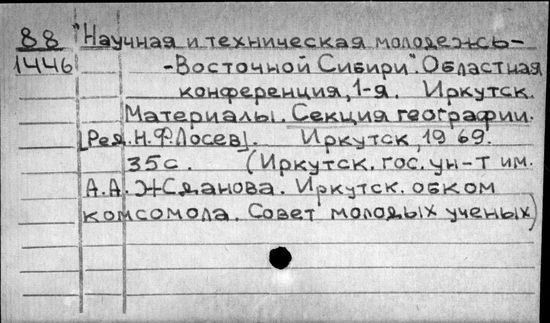 88 "Научная и техническая молодежь-
1446 -Восточной Сибири". Областная
конференция, 1-я. Иркутск.
Материалы. Секция географии.
[Ред. Н.Ф. Лосев]. Иркутск, 1969.
35с. (Иркутск. гос. ун-т им.
А.А. Жданова. Иркутск. обком
комсомола. Совет молодых ученых)